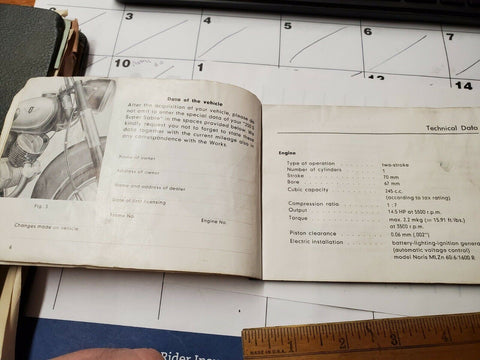 3
4
5
6
7
10
11
12
13
14
1
Data of the vehicle
After the acquisition of your vehicle, please do
not omit to enter the special data of your "250 S
Super Sable" in the spaces provided below. We
kindly request you not to forget to state these
data together with the current mileage also in
any correspondence with the Works.
Name of owner
Address of owner
Name and address of dealer
Date of first licensing
Frame No.
Engine No.
Fig. 3
Changes made on vehicle
4
Technical Data
Engine
Type of operation . . . two-stroke
Number of cylinders . . . 1
Stroke . . . 70 mm
Bore . . . 67 mm
Cubic capacity . . . 245 c.c.
(according to tax rating)
Compression ratio . . . 1 : 7
Output . . . 14.5 HP at 5500 r.p.m.
Torque . . . max. 2.2 mkg (= 15.91 ft lbs.)
at 5500 r.p.m.
Piston clearance . . . 0.06 mm (.002")
Electric installation . . . battery-lighting-ignition genera
(automatic voltage control)
model Noris MLZn 60/6/1600 R
MADE IN U.S.A.
1
2
3
4
Rider